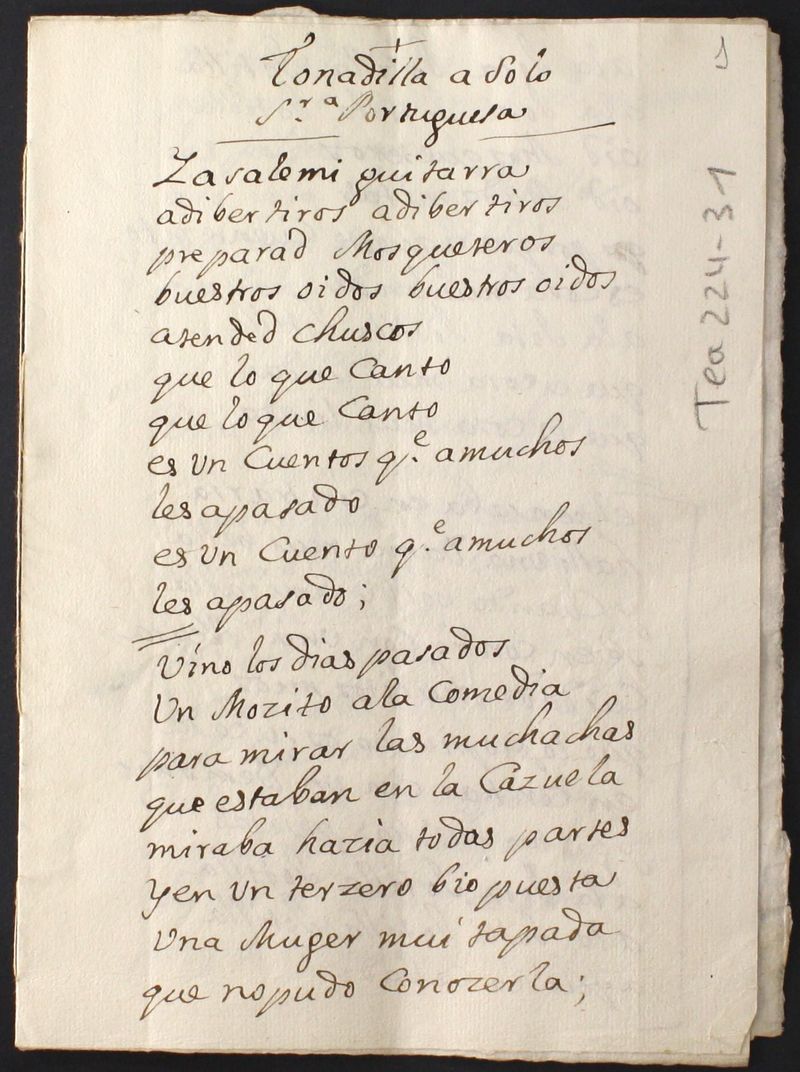 +
Tonadilla a Solo
S.ra Portuguesa
Zasalemi guitarra
adibertiros adibertiros
preparad Mosqueteros
buestros oidos buestros oidos
atended chuscos
que lo que Canto
que lo que Canto
es Un Cuentos q.e amuchos
les apasado
es Un Cuento q.e amuchos
les apasado;
Vino los dias pasados
Un Mozito ala Comedia
para mirar las muchachas
que estaban en la Cazuela
miraba hazia todas partes
yen Un terzero bio puesta
Una Muger mui tapada
que nopudo Conozerla;
1
Tea 224-31